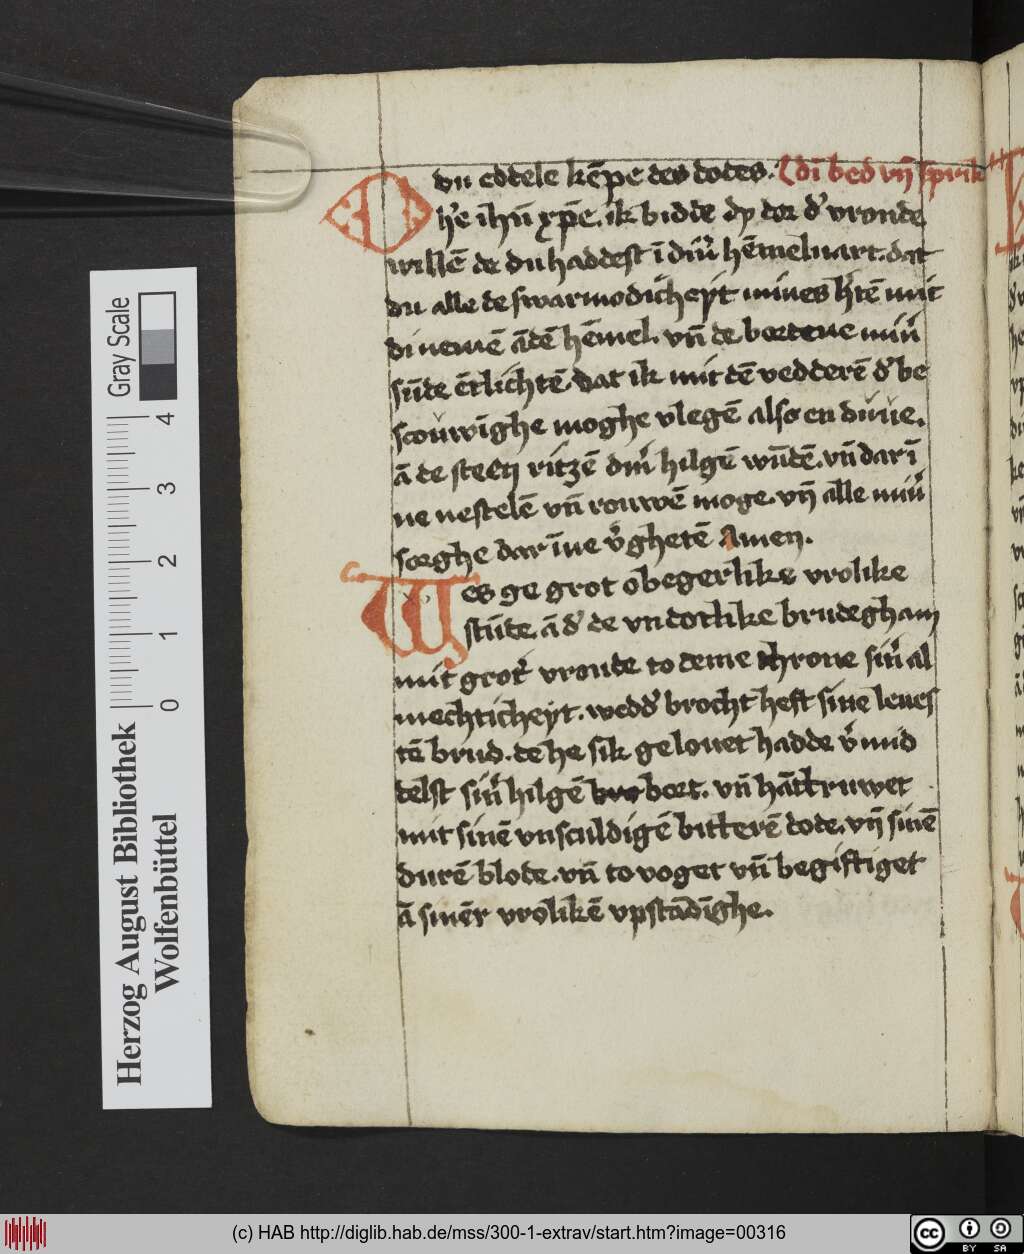 O du eddele kēpe des dodes. di bed vn̄ sprik
h'e ihū xp̄e. ik bidde dy dor d' vronde
willē de du haddest ī din' hēmeluart. dat
du alle de swarmodicheyt mines h'tē mit
dinemē ādē hēmel. vn̄ de bortene min'
sūde ētlichtē. dat ik mit dē vedderē d' be
scouwīghe moghe vlegē also en duue.
ā de steen ritzē din' hilgē wūdē. vn̄ dar ī
ne nestelē vn̄ rouwē moge. vn̄ alle min'
sorghe dar īne v'ghetē Amen.
Wes ge grot o begerlike vrolike
stūde. ā d' de vndotlike brudegham
mit grot' vronde to deme throne sin' al
mechticheyt. wedd' brocht heft sine leues
tē brud. de he sik gelouet hadde v'mid
delst sin' hilgē bort. vn̄ hāttruwet
mit sinē vnsculdigē bitterē dode. vn̄ sinē
durē blode. vn̄ to voget vn̄ begiftiget
ā sinēr vrolikē vpstādīghe.
Gray Scale
4 3 2 1 0
Herzog August Bibliothek
Wolfenbüttel
(c) HAB http://diglib.hab.de/mss/300-1-extrav/start.htm?image=00316
cc BY SA